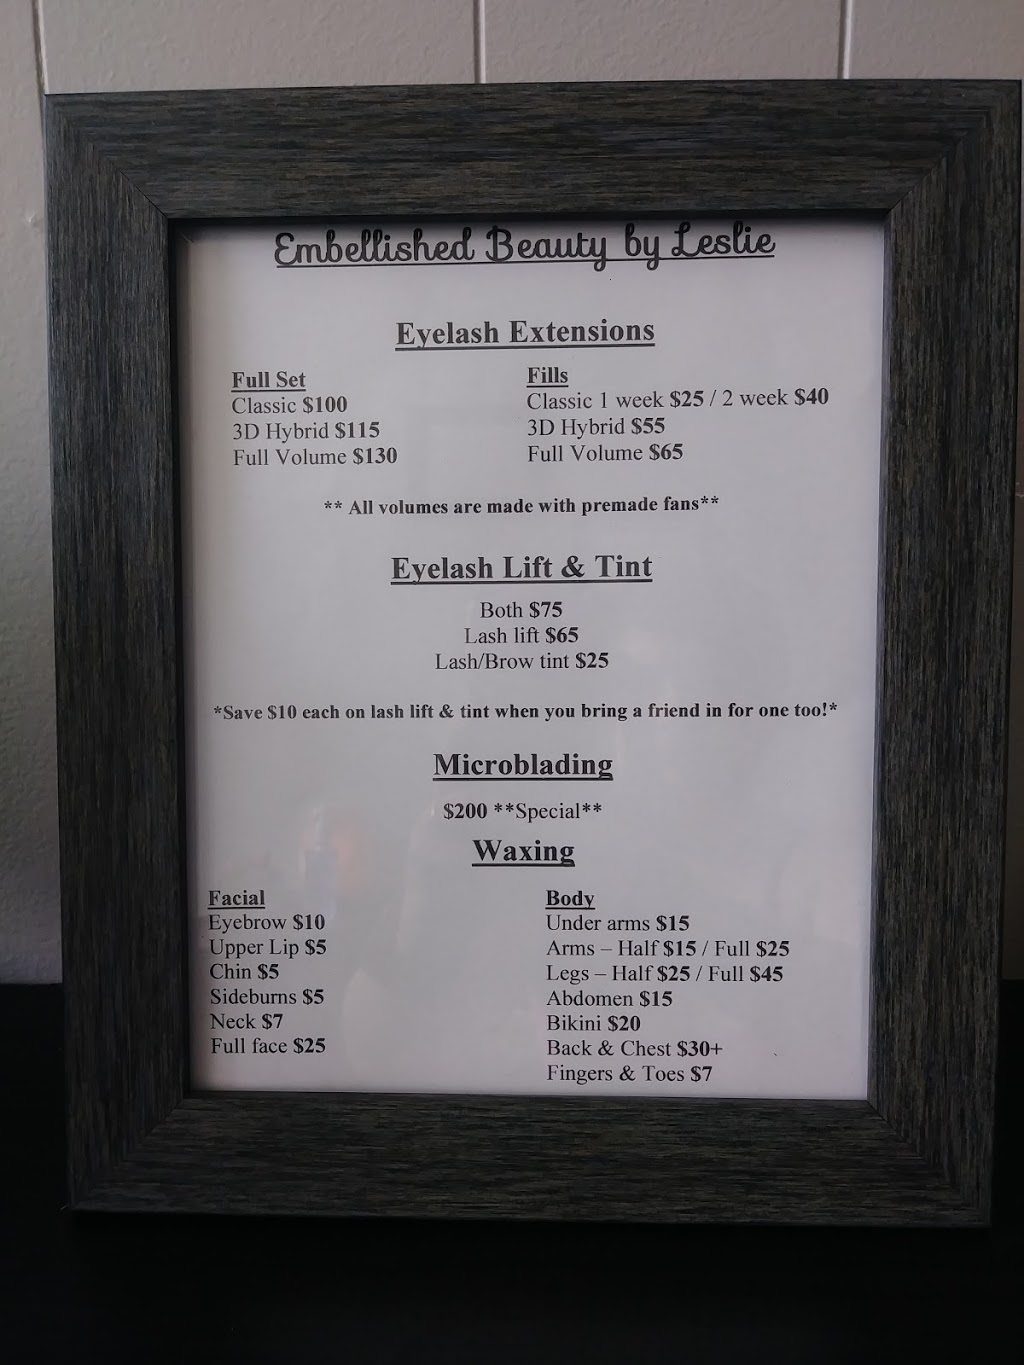 Embellished Beauty by Leslie
Eyelash Extensions
Full Set
Classic $100
3D Hybrid $115
Full Volume $130
Fills
Classic 1 week $25 / 2 week $40
3D Hybrid $55
Full Volume $65
** All volumes are made with premade fans**
Eyelash Lift & Tint
Both $75
Lash lift $65
Lash/Brow tint $25
*Save $10 each on lash lift & tint when you bring a friend in for one too!*
Microblading
$200 **Special**
Waxing
Facial
Eyebrow $10
Upper Lip $5
Chin $5
Sideburns $5
Neck $7
Full face $25
Body
Under arms $15
Arms – Half $15 / Full $25
Legs – Half $25 / Full $45
Abdomen $15
Bikini $20
Back & Chest $30+
Fingers & Toes $7